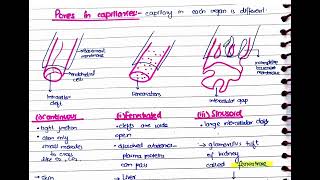 Pores in capillaries:- capillary in each organ is different.
Basement membrane
Endothelial cells
Intercellular cleft
Fenestrations
incomplete basement membrane
intercellular gap
(i) Continuous
• tight junction
• Clan only
small molecules
to cross
like
• Skin
(ii) Fenestrated
• clefts are wide
open
plasma proteins
can pass
• liver
(iii) Sinusoid
• large intercellular clefts
• glomerulus tuft
of kidney
called fenestrae